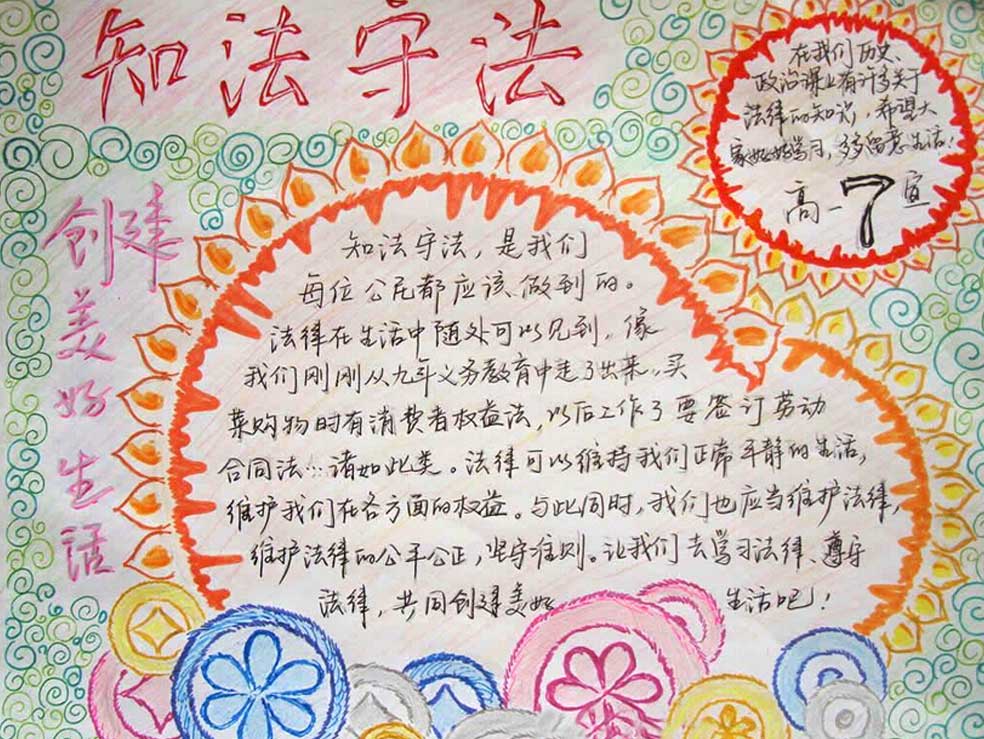 知法守法
创建美好生活
在我们历史、
政治课上有许多关于
法律的知识，希望大
家好好学习，多多留意生活！
高一7宣
知法守法，是我们
每位公民都应该做到的。
法律在生活中随处可以见到，像
我们刚刚从九年义务教育中走了出来，买
菜购物时有消费者权益法，以后工作了要签订劳动
合同法…诸如此类。法律可以维持我们正常平静的生活，
维护我们在各方面的权益。与此同时，我们也应当维护法律，
维护法律的公平公正，坚守准则。让我们去学习法律、遵守
法律，共同创建美好生活吧！